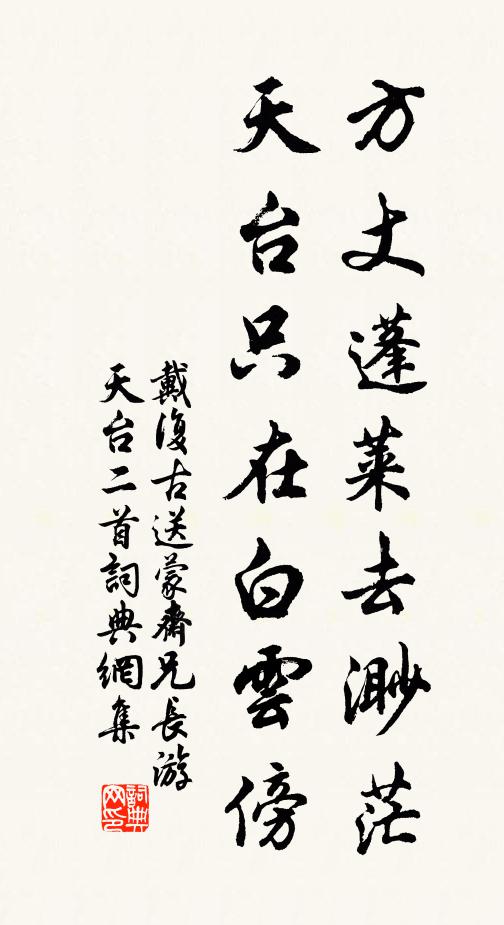 方丈蓬萊去渺茫
天台只在白雲傍
戴復古送蒙齋兄長游
天台二首詞典網集
詞典網印